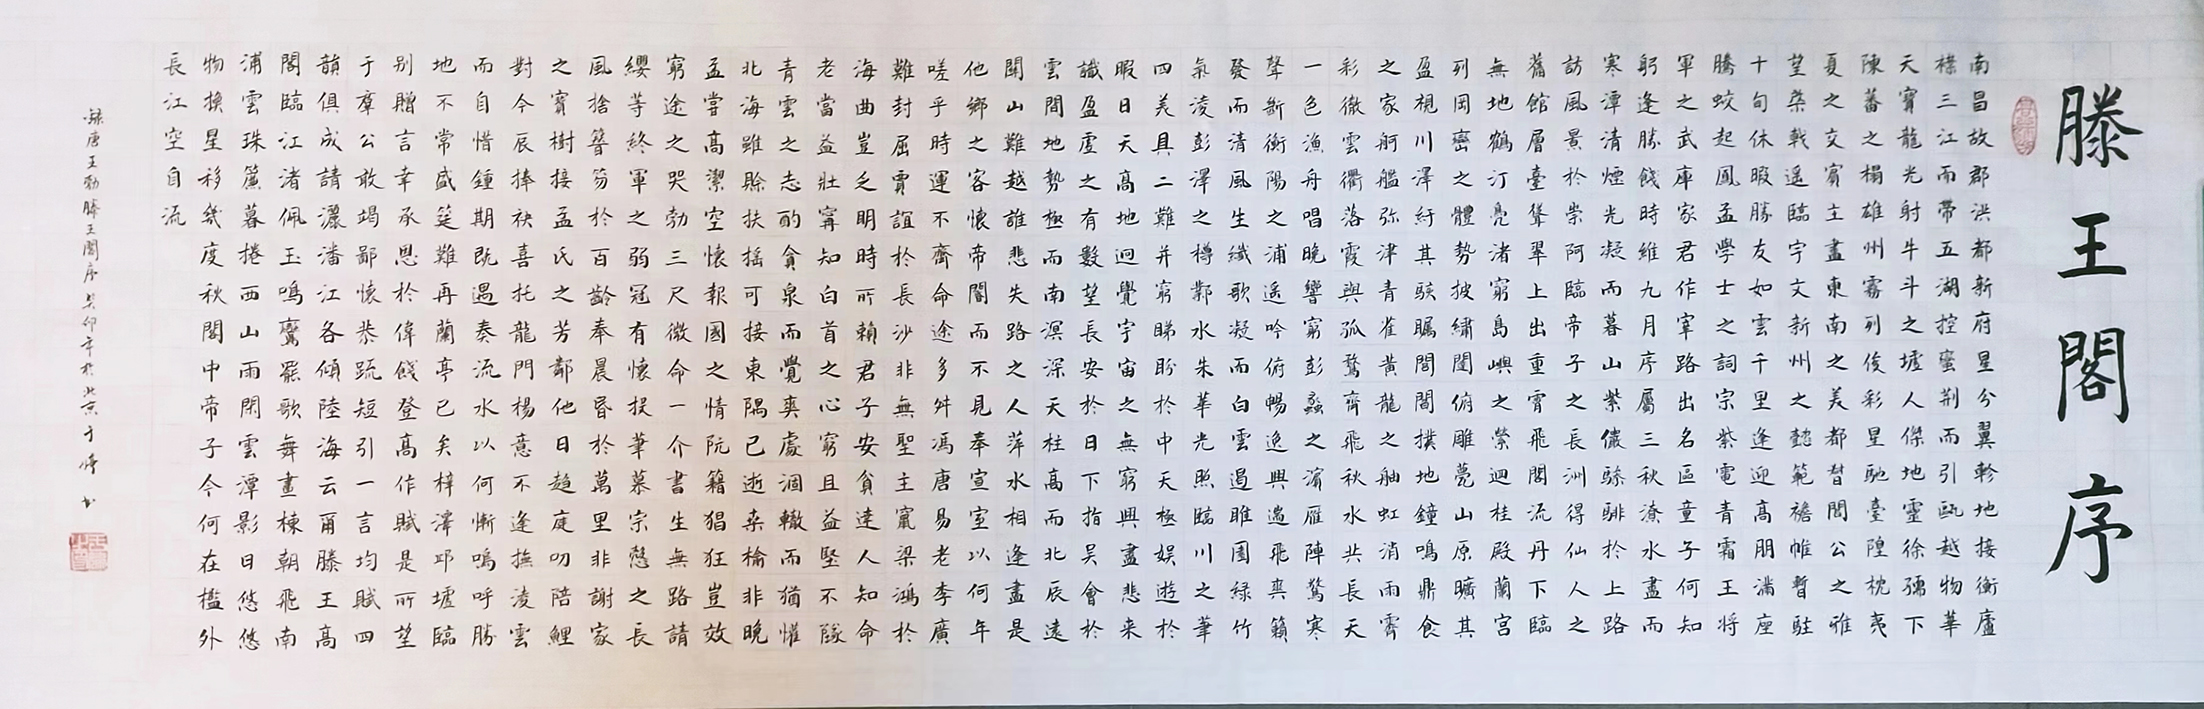 滕王閣序
南昌故郡洪都新府星分翼軫地接衡廬
襟三江而帶五湖控蠻荆而引甌越物華
天寶龍光射牛斗之墟人傑地靈徐孺下
陳蕃之榻雄州霧列俊彩星馳臺隍枕夷
夏之交賓主盡東南之美都督閻公之雅
望棨戟遥臨宇文新州之懿範襜帷暫駐
十旬休暇勝友如雲千里逢迎高朋滿座
騰蛟起鳳孟學士之詞宗紫電青霜王將
軍之武庫家君作宰路出名區童子何知
躬逢勝餞時維九月序屬三秋潦水盡而
寒潭清煙光凝而暮山紫儼驂騑於上路
訪風景於崇阿臨帝子之長洲得仙人之
舊館層臺聳翠上出重霄飛閣流丹下臨
無地鶴汀凫渚窮島嶼之縈迴桂殿蘭宫
列岡巒之體勢披繡闥俯雕甍山原曠其
盈視川澤紆其駭矚閭閻撲地鐘鳴鼎食
之家舸艦弥津青雀黄龍之舳虹消雨霽
彩徹雲衢落霞與孤鶩齊飛秋水共長天
一色漁舟唱晚響窮彭蠡之濱雁陣驚寒
聲斷衡陽之浦遥吟俯暢逸興遄飛爽籟
發而清風生纖歌凝而白雲遏睢園绿竹
氣凌彭澤之樽鄴水朱華光照臨川之筆
四美具二難并窮睇眄於中天極娱遊於
暇日天高地迥覺宇宙之無窮興盡悲来
識盈虚之有數望長安於日下指吴會於
雲間地勢極而南溟深天柱高而北辰遠
關山難越誰悲失路之人萍水相逢盡是
他鄉之客懷帝閽而不見奉宣室以何年
嗟乎時運不齊命途多舛馮唐易老李廣
難封屈賈誼於長沙非無聖主竄梁鴻於
海曲豈乏明時所賴君子安貧達人知命
老當益壯甯知白首之心窮且益堅不墜
青雲之志酌貪泉而覺爽處涸轍而猶懽
北海雖賒扶摇可接東隅已逝桑榆非晚
孟嘗高潔空懷報國之情阮籍猖狂豈效
窮途之哭勃三尺微命一介書生無路請
纓等終軍之弱冠有懷投筆慕宗慤之長
風捨簪笏於百齡奉晨昏於萬里非謝家
之寶樹接孟氏之芳鄰他日趋庭叨陪鯉
對今辰捧袂喜托龍門楊意不逢撫凌雲
而自惜鍾期既遇奏流水以何慚鳴呼勝
地不常盛筵難再蘭亭已矣梓澤邱墟臨
别贈言幸承恩於偉餞登高作賦是所望
于羣公敢竭鄙懷恭疏短引一言均賦四
韻俱成請灑潘江各傾陸海云爾滕王高
閣臨江渚佩玉鳴鸞罷歌舞畫棟朝飛南
浦雲珠簾暮捲西山雨閑雲潭影日悠悠
物换星移幾度秋閣中帝子今何在檻外
長江空自流
錄唐王勃滕王閣序癸卯年於北京